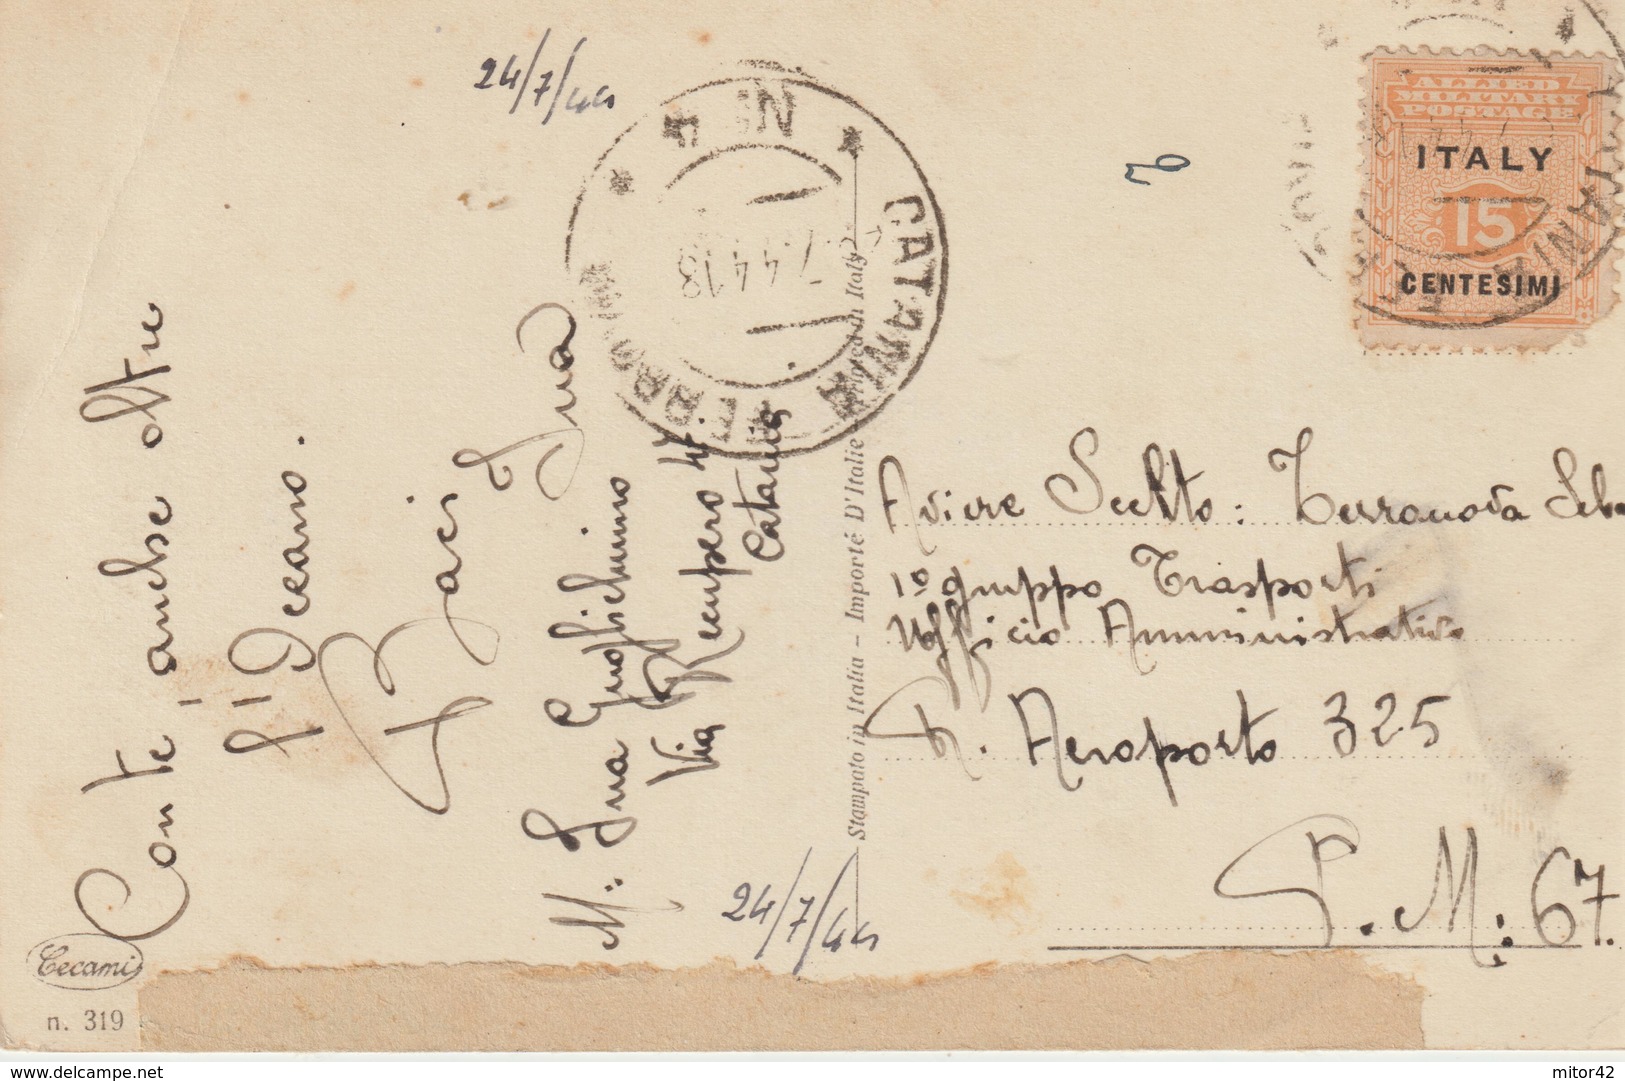 24/7/44
Con te, anche oltre
l'Oceano.
Baci
M: Ina Guglielmino
Via Recupero 47.
Catania
24/7/44
Cecami
n. 319
Stampato in Italia - Importé D'Italie - Printed in Italy
CATANIA FERROVIA
N 4
7.44.18
ALLIED
MILITARY
POSTAGE
ITALY
15
CENTESIMI
Aviere Scelto: Terranova Seba
1° gruppo Trasporti
Ufficio Amministrativo
R. Aeroporto 325
P.M: 67.
delcampe.net
mitor42